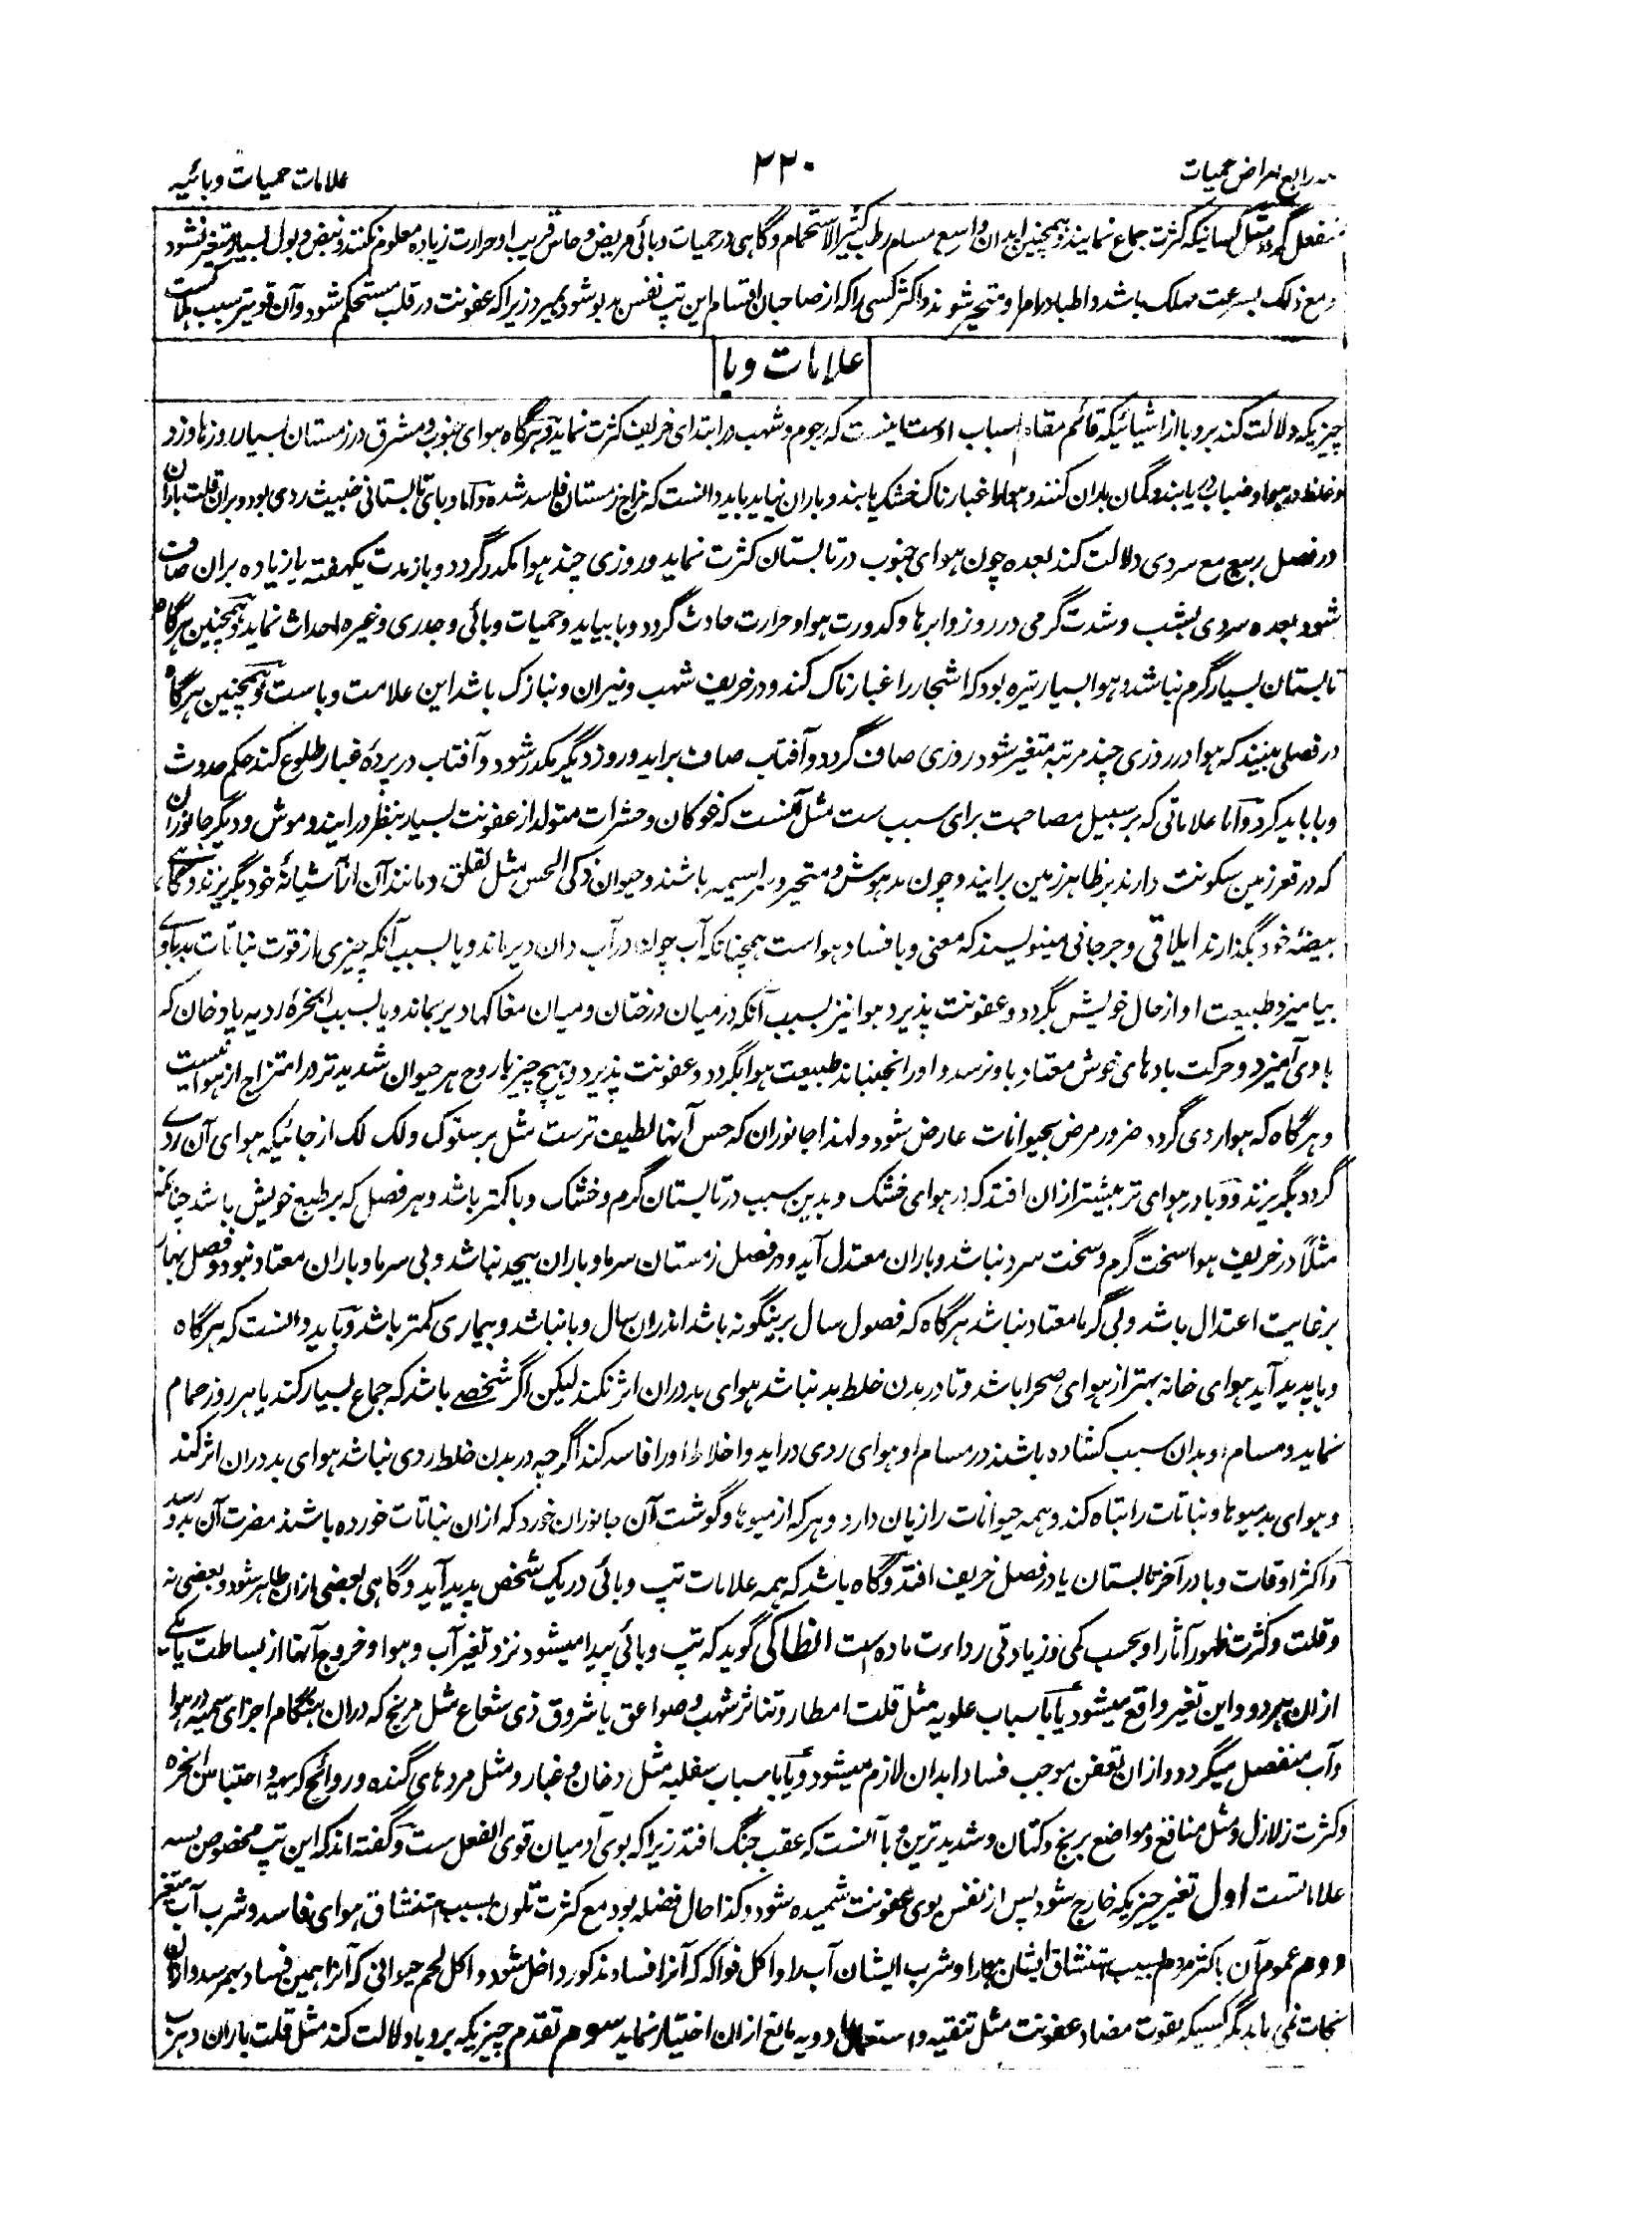 رابع امراض حمیات
۲۲۰
علامات حمیات وبائیه
منفعل گردد مثل کسانیکه کثرت جماع نمایند و همچنین ابدان واسع مسام رطب کثیر الاستحمام و گاهی در حمیات وبائی مریض و حاس قریب او حرارت زیاده معلوم نکنند و نبض و بول بسیار متغیر نشود
و مع ذلک بسرعت مهلک باشد و اطبا در امر او متحیر شوند و اکثر کسی را که از صاحبان اقسام این تپ نفس بدبو شود بمیرد زیرا که عفونت در قلب مستحکم شود و آن قویتر سبب هلاکست
علامات وبا
چیزیکه دلالت کند بر وبا از اشیائیکه قائم مقام اسباب اوست اینست که رجوم و شهب در ابتدای خریف کثرت نماید و هرگاه هوای جنوب و مشرق در زمستان بسیار روزها وزد
و غلظ در هوا و ضباب دریابند و گمان باران کنند و هوا را غبارناک خشک یابند و باران نیاید باید دانست که مزاج زمستان فاسد شده و اما وبای تابستانی خبیث ردی بود و بران قلت باران
در فصل ربیع مع سردی دلالت کند بعده چون هوای جنوب در تابستان کثرت نماید و روزی چند هوا مکدر گردد و باز مدت یکهفته یا زیاده بران صاف
شود بعده سردی بشب و شدت گرمی در روز و ابرها و کدورت هوا و حرارت حادث گردد وبا بیاید و حمیات وبائی و جدری و غیره احداث نماید و همچنین هرگاه
تابستان بسیار گرم نباشد و هوا بسیار تیره بود که اشجار را غبارناک کند و در خریف شهب و نیران و نیازک باشد این علامت وباست و همچنین هرگاه
در فصلی ببینند که هوا در روزی چند مرتبه متغیر شود روزی صاف گردد و آفتاب صاف براید و روز دیگر مکدر شود و آفتاب در پردهٔ غبار طلوع کند حکم حدوث
وبا باید کرد و اما علاماتی که بر سبیل مصاحبت برای سبب ست مثل آنست که غوکان و حشرات متولد از عفونت بسیار بنظر درایند و موش و دیگر جانوران
که در قعر زمین سکونت دارند بر ظاهر زمین برایند و چون مدهوش و متحیر و سراسیمه باشند و حیوان ذکی الحس مثل لقلق و مانند آن از آشیانهٔ خود بگریزند و گاهے
بیضهٔ خود بگذارند ایلاقی و جرجانی مینویسند که معنی وبا فساد هواست همچنانکه آب چون در آب دان دیر ماند و یا بسبب آنکه چیزی از قوت نباتات بد باوے
بیامیزد طبیعت او از حال خویش بگردد و عفونت پذیرد هوا نیز بسبب آنکه در میان درختان و میان مغاکها دیر بماند و یا بسبب ابخرهٔ ردیه یا دخان که
با وی آمیزد و حرکت بادهای خوش معتاد باو نرسد و او را نجنباند طبیعت هوا بگردد و عفونت پذیرد و هیچ چیز با روح هر حیوان شدیدتر در امتزاج از هوا نیست
و هرگاه که هوا ردی گردد ضرور مرض بحیوانات عارض شود و لهذا جانوران که حس آنها لطیف ترست مثل پرستوک و لک لک از جائیکه هوای آن ردے
گردد بگریزند و وبا در هوای تر بیشتر ازان افتد که در هوای خشک و بدین سبب در تابستان گرم و خشک وبا کمتر باشد و هر فصل که بر طبع خویش باشد چنانکه
مثلاً در خریف هوا سخت گرم و سخت سرد نباشد و باران معتدل آید و در فصل زمستان سرما و باران بیحد نباشد و بی سرما و باران معتاد نبود و فصل بهار
بر غایت اعتدال باشد و بی گرما معتاد نباشد هرگاه که فصول سال برینگونه باشد اندران سال وبا نباشد و بیماری کمتر باشد و باید دانست که هرگاه
وبا پدید آید هوای خانه بهتر از هوای صحرا باشد و تا در بدن خلط بد نباشد هوای بد دران اثر نکند لیکن اگر شخصے باشد که جماع بسیار کند یا هر روز حمام
نماید و مسام او بدان سبب کشاده باشند در مسام او هوای ردی دراید و اخلاط او را فاسد کند اگرچه در بدن خلط ردی نباشد هوای بد دران اثر کند
و هوای بد میوها و نباتات را تباه کند و همه حیوانات را زیان دارد و هر که از میوها و گوشت آن جانوران خورد که ازان نباتات خورده باشند مضرت آن بدو رسد
و اکثر اوقات وبا در آخر تابستان یا در فصل خریف افتد و گاه باشد که همه علامات تپ وبائی در یک شخص پدید آید و گاهی بعضی ازان ظاهر شود و بعضی نه
و قلت و کثرت ظهور آثار او بحسب کمی و زیادتی رداءت ماده است انطاکی گوید که تپ وبائی پیدا میشود نزد تغیر آب و هوا و خروج آنها از بساطت یا یکے
ازان هر دو و این تغیر واقع میشود یا باسباب علویه مثل قلت امطار و تناثر شهب و صواعق یا شروق ذی شعاع مثل مریخ که دران هنگام اجزای سمیه در هوا
و آب منفصل میگردد و ازان تعفن موجب فساد ابدان لازم میشود و یا باسباب سفلیه مثل دخان و غبار و مثل مردهای گنده و روائح کریهه و احتباس ابخره
و کثرت زلازل و مثل مناقع و مواضع برنج و کتان و شدیدترین وبا آنست که عقب جنگ افتد زیرا که بوی آدمیان قوی الفعل ست و گفته اند که این تپ مخصوص بسه
علاماتست اول تغیر چیزیکه خارج شود پس از نفس بوی عفونت شمیده شود و کذا حال فضله بود مع کثرت تلون بسبب استنشاق هوای فاسد و شرب آب متغیر
دوم عموم آن باکثر مردم بسبب استنشاق ایشان هوا را و شرب ایشان آب را و اکل فواکه که آنرا فساد مذکور داخل شود و اکل لحم حیوانی که آنرا همین فساد بهم رسد و ازان
نجات نمی یابد مگر کسیکه بقوت مضاد عفونت مثل تنقیه و استعمال ادویه مانع ازان اختیار نماید سوم تقدم چیزیکه بر وبا دلالت کند مثل قلت باران و